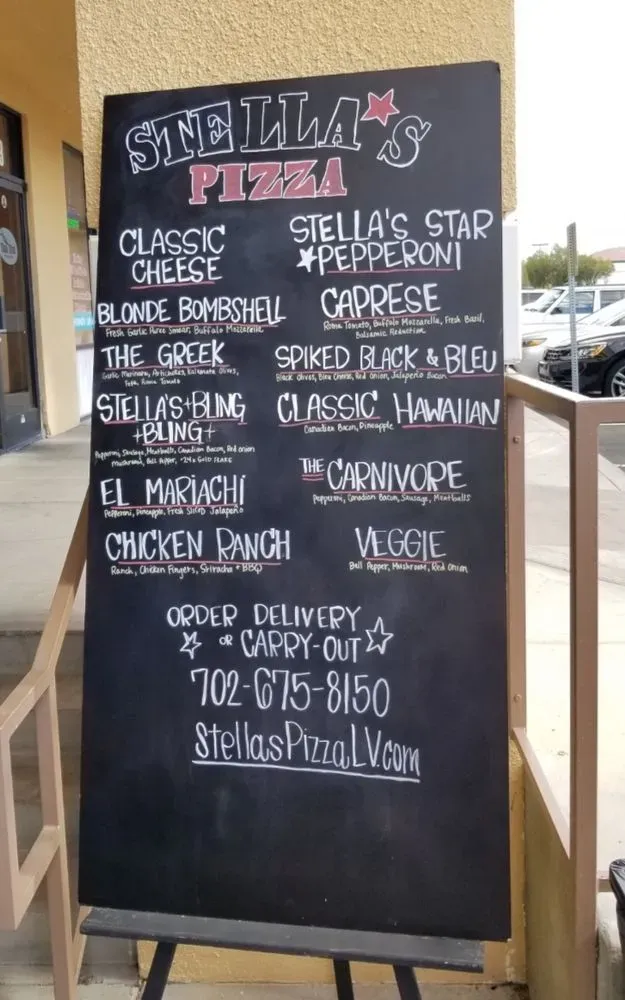 STELLA'S
PIZZA
CLASSIC
CHEESE
STELLA'S STAR
PEPPERONI
BLONDE BOMBSHELL
Fresh Garlic Puree Smear, Buffalo Mozzarella
CAPRESE
Roma Tomato, Buffalo Mozzarella, Fresh Basil,
Balsamic Reduction
THE GREEK
Garlic Marinara, Artichokes, Kalamata Olives,
Feta, Roma Tomato
SPIKED BLACK & BLEU
Black Olives, Bleu Cheese, Red Onion, Jalapeño Bacon
STELLA'S+BLING
+BLING+
Pepperoni, Sausage, Meatballs, Canadian Bacon, Red onion
mushroom, Bell Pepper, +24K GOLD FLAKE
CLASSIC HAWAIIAN
Canadian Bacon, Pineapple
EL MARIACHI
Pepperoni, Pineapple, Fresh Sliced Jalapeño
THE CARNIVORE
Pepperoni, Canadian Bacon, Sausage, Meatballs
CHICKEN RANCH
Ranch, Chicken Fingers, Sriracha + BBQ
VEGGIE
Bell Pepper, Mushroom, Red Onion
ORDER DELIVERY
OR CARRY-OUT
702-675-8150
StellasPizzaLV.com